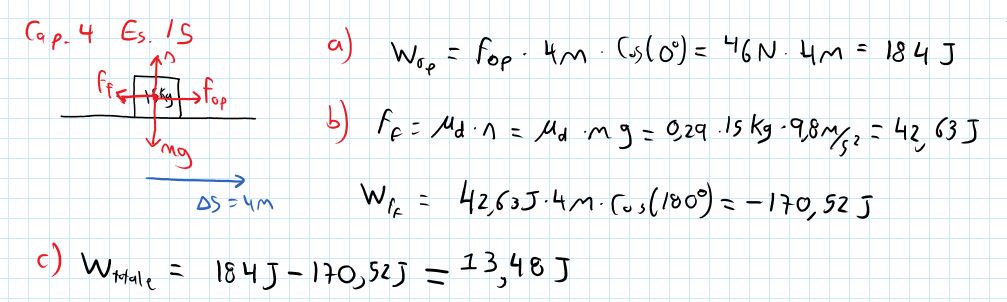 Cap. 4 Es. 15
n
Ff
15kg
fop
mg
ΔS = 4m
a) Wop = fop · 4m · Cos(0°) = 46N · 4m = 184 J
b) Ff = μd · n = μd · mg = 0,29 · 15 kg · 9,8 m/s² = 42,63 J
Wff = 42,63 J · 4m · Cos(180°) = -170,52 J
c) Wtotale = 184 J - 170,52 J = 13,48 J